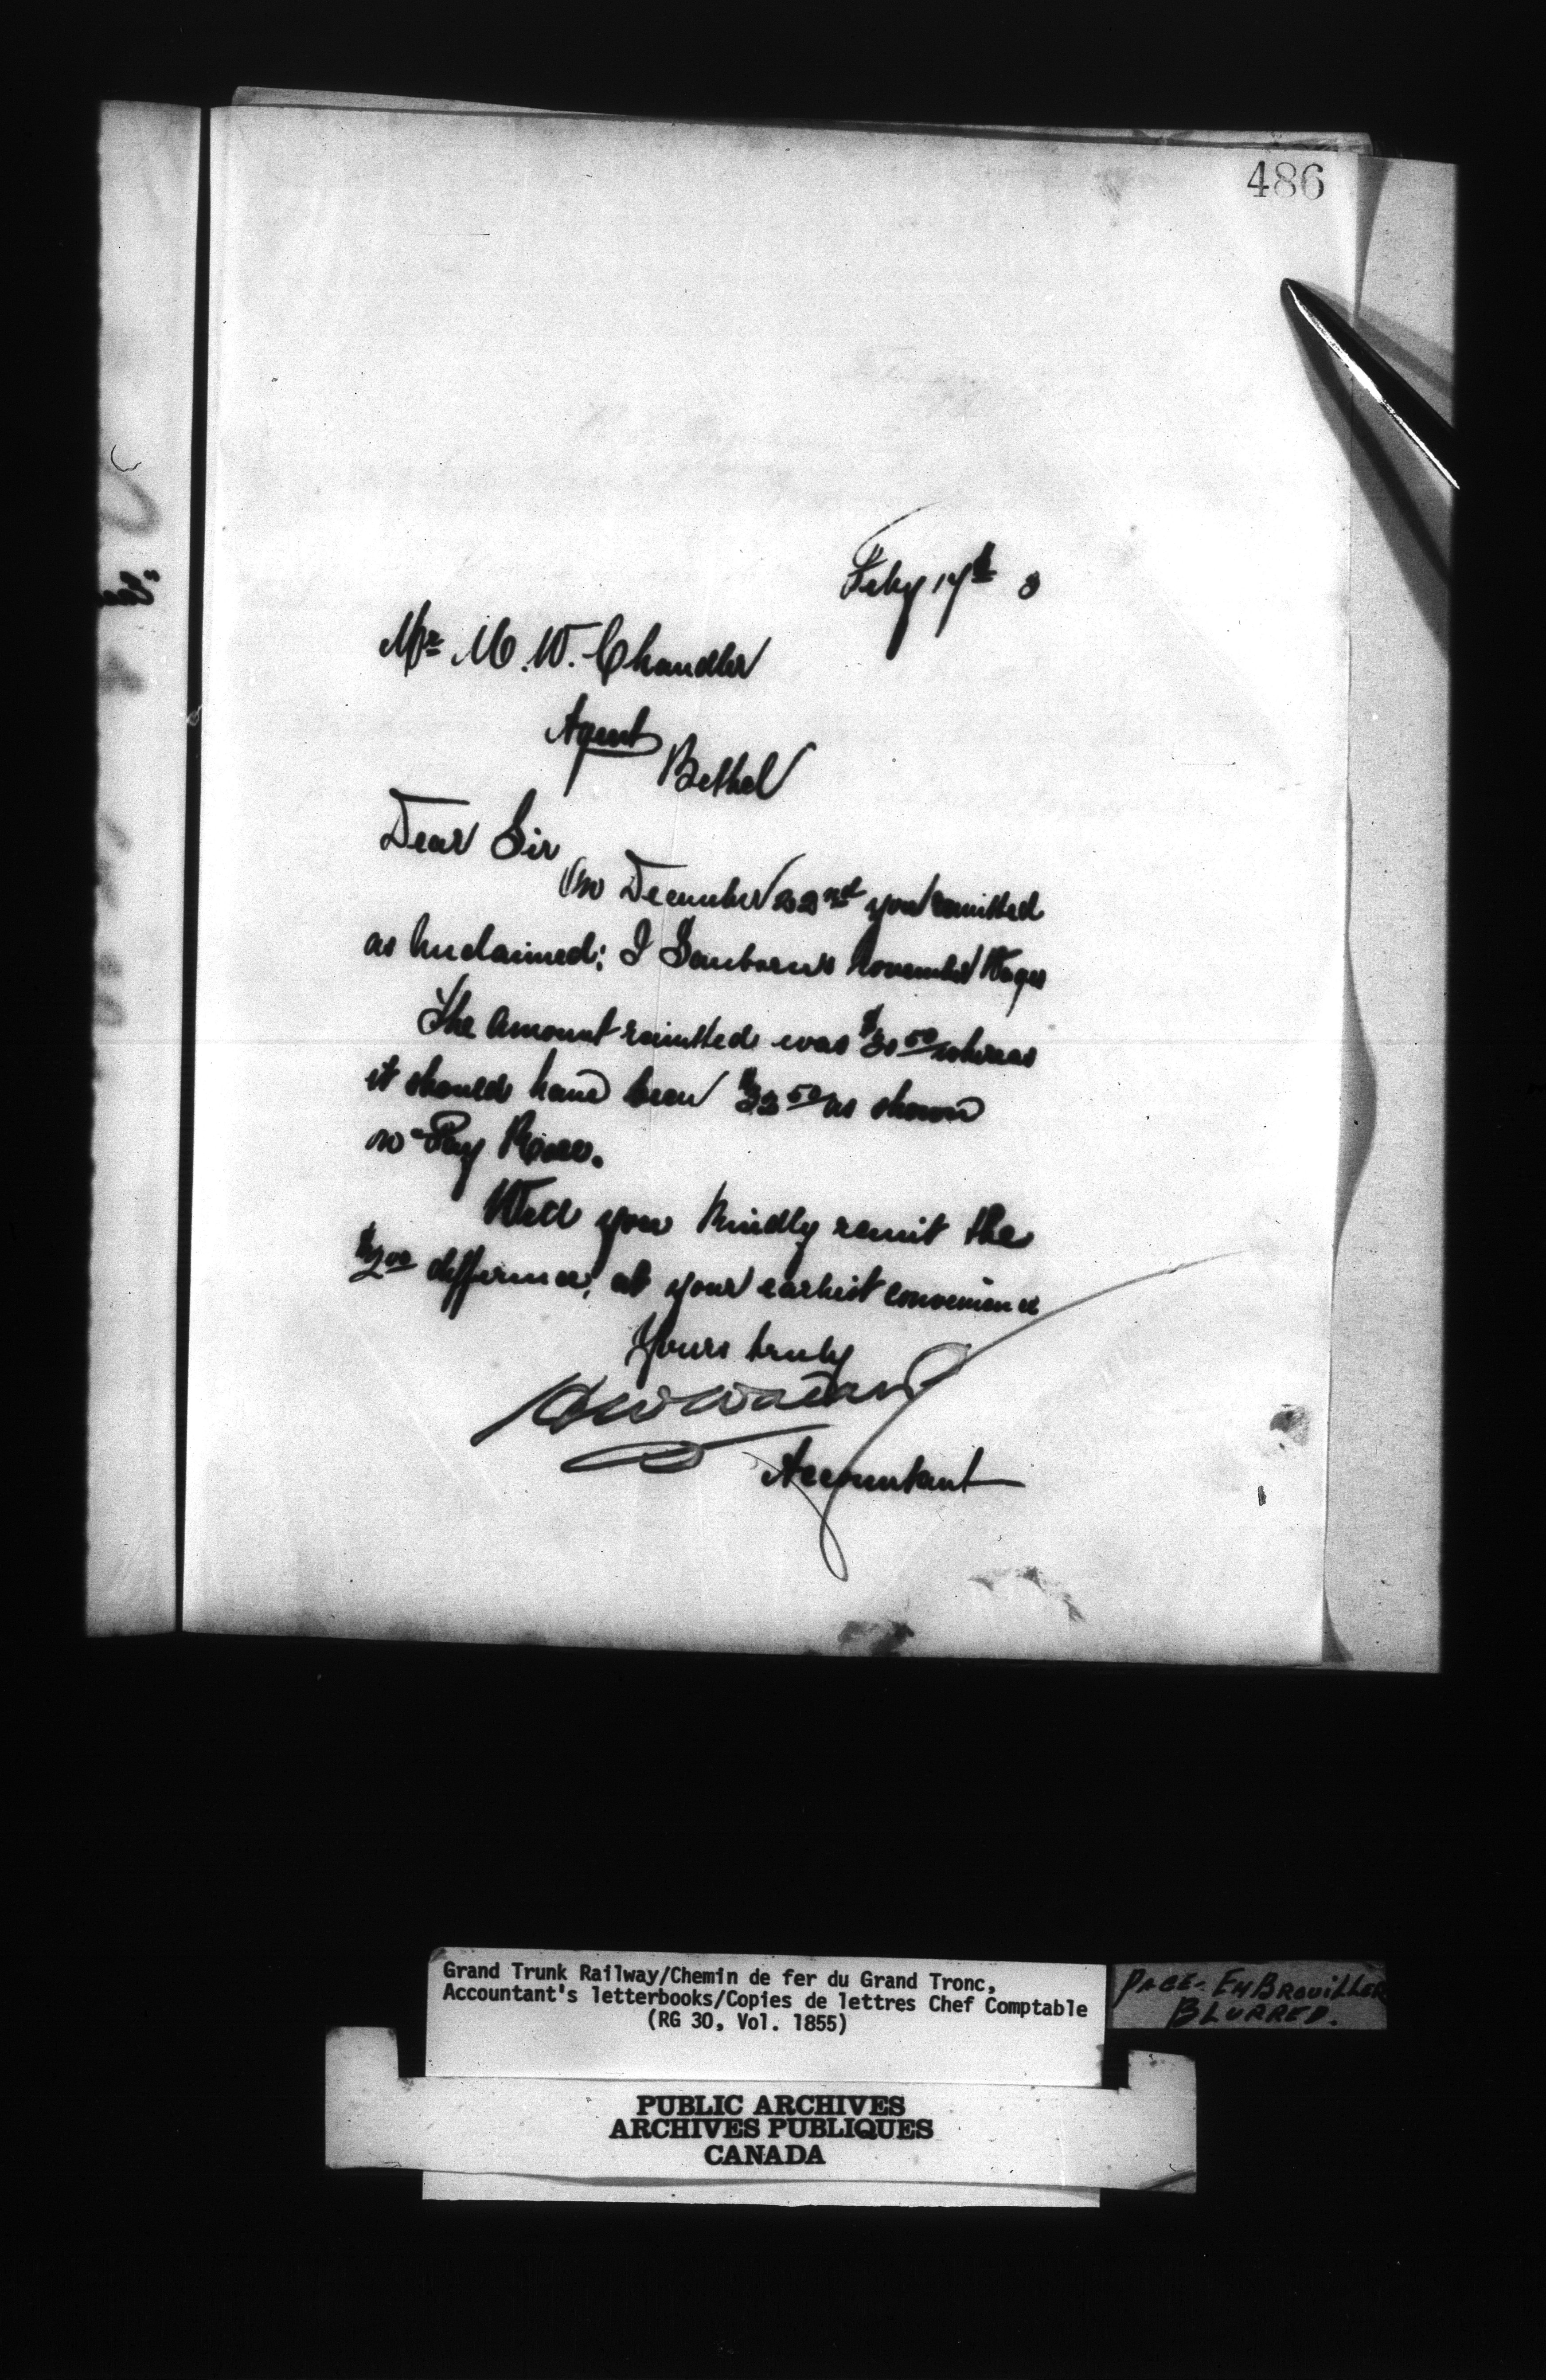 486
Feby 17th 3
Mr M. W. Chandler
Agent
Bethel
Dear Sir
On December 22nd you remitted
as Unclaimed; I Sanborn's November Wages
The Amount remitted was $30 50 whereas
it should have been $32 50 as shown
on Pay Roll.
Will you Kindly remit the
$2 00 difference, at your earliest convenience
Yours truly
Accountant
Grand Trunk Railway/Chemin de fer du Grand Tronc,
Accountant's letterbooks/Copies de lettres Chef Comptable
(RG 30, Vol. 1855)
PAGE- EMBROUILLER
BLURRED.
PUBLIC ARCHIVES
ARCHIVES PUBLIQUES
CANADA